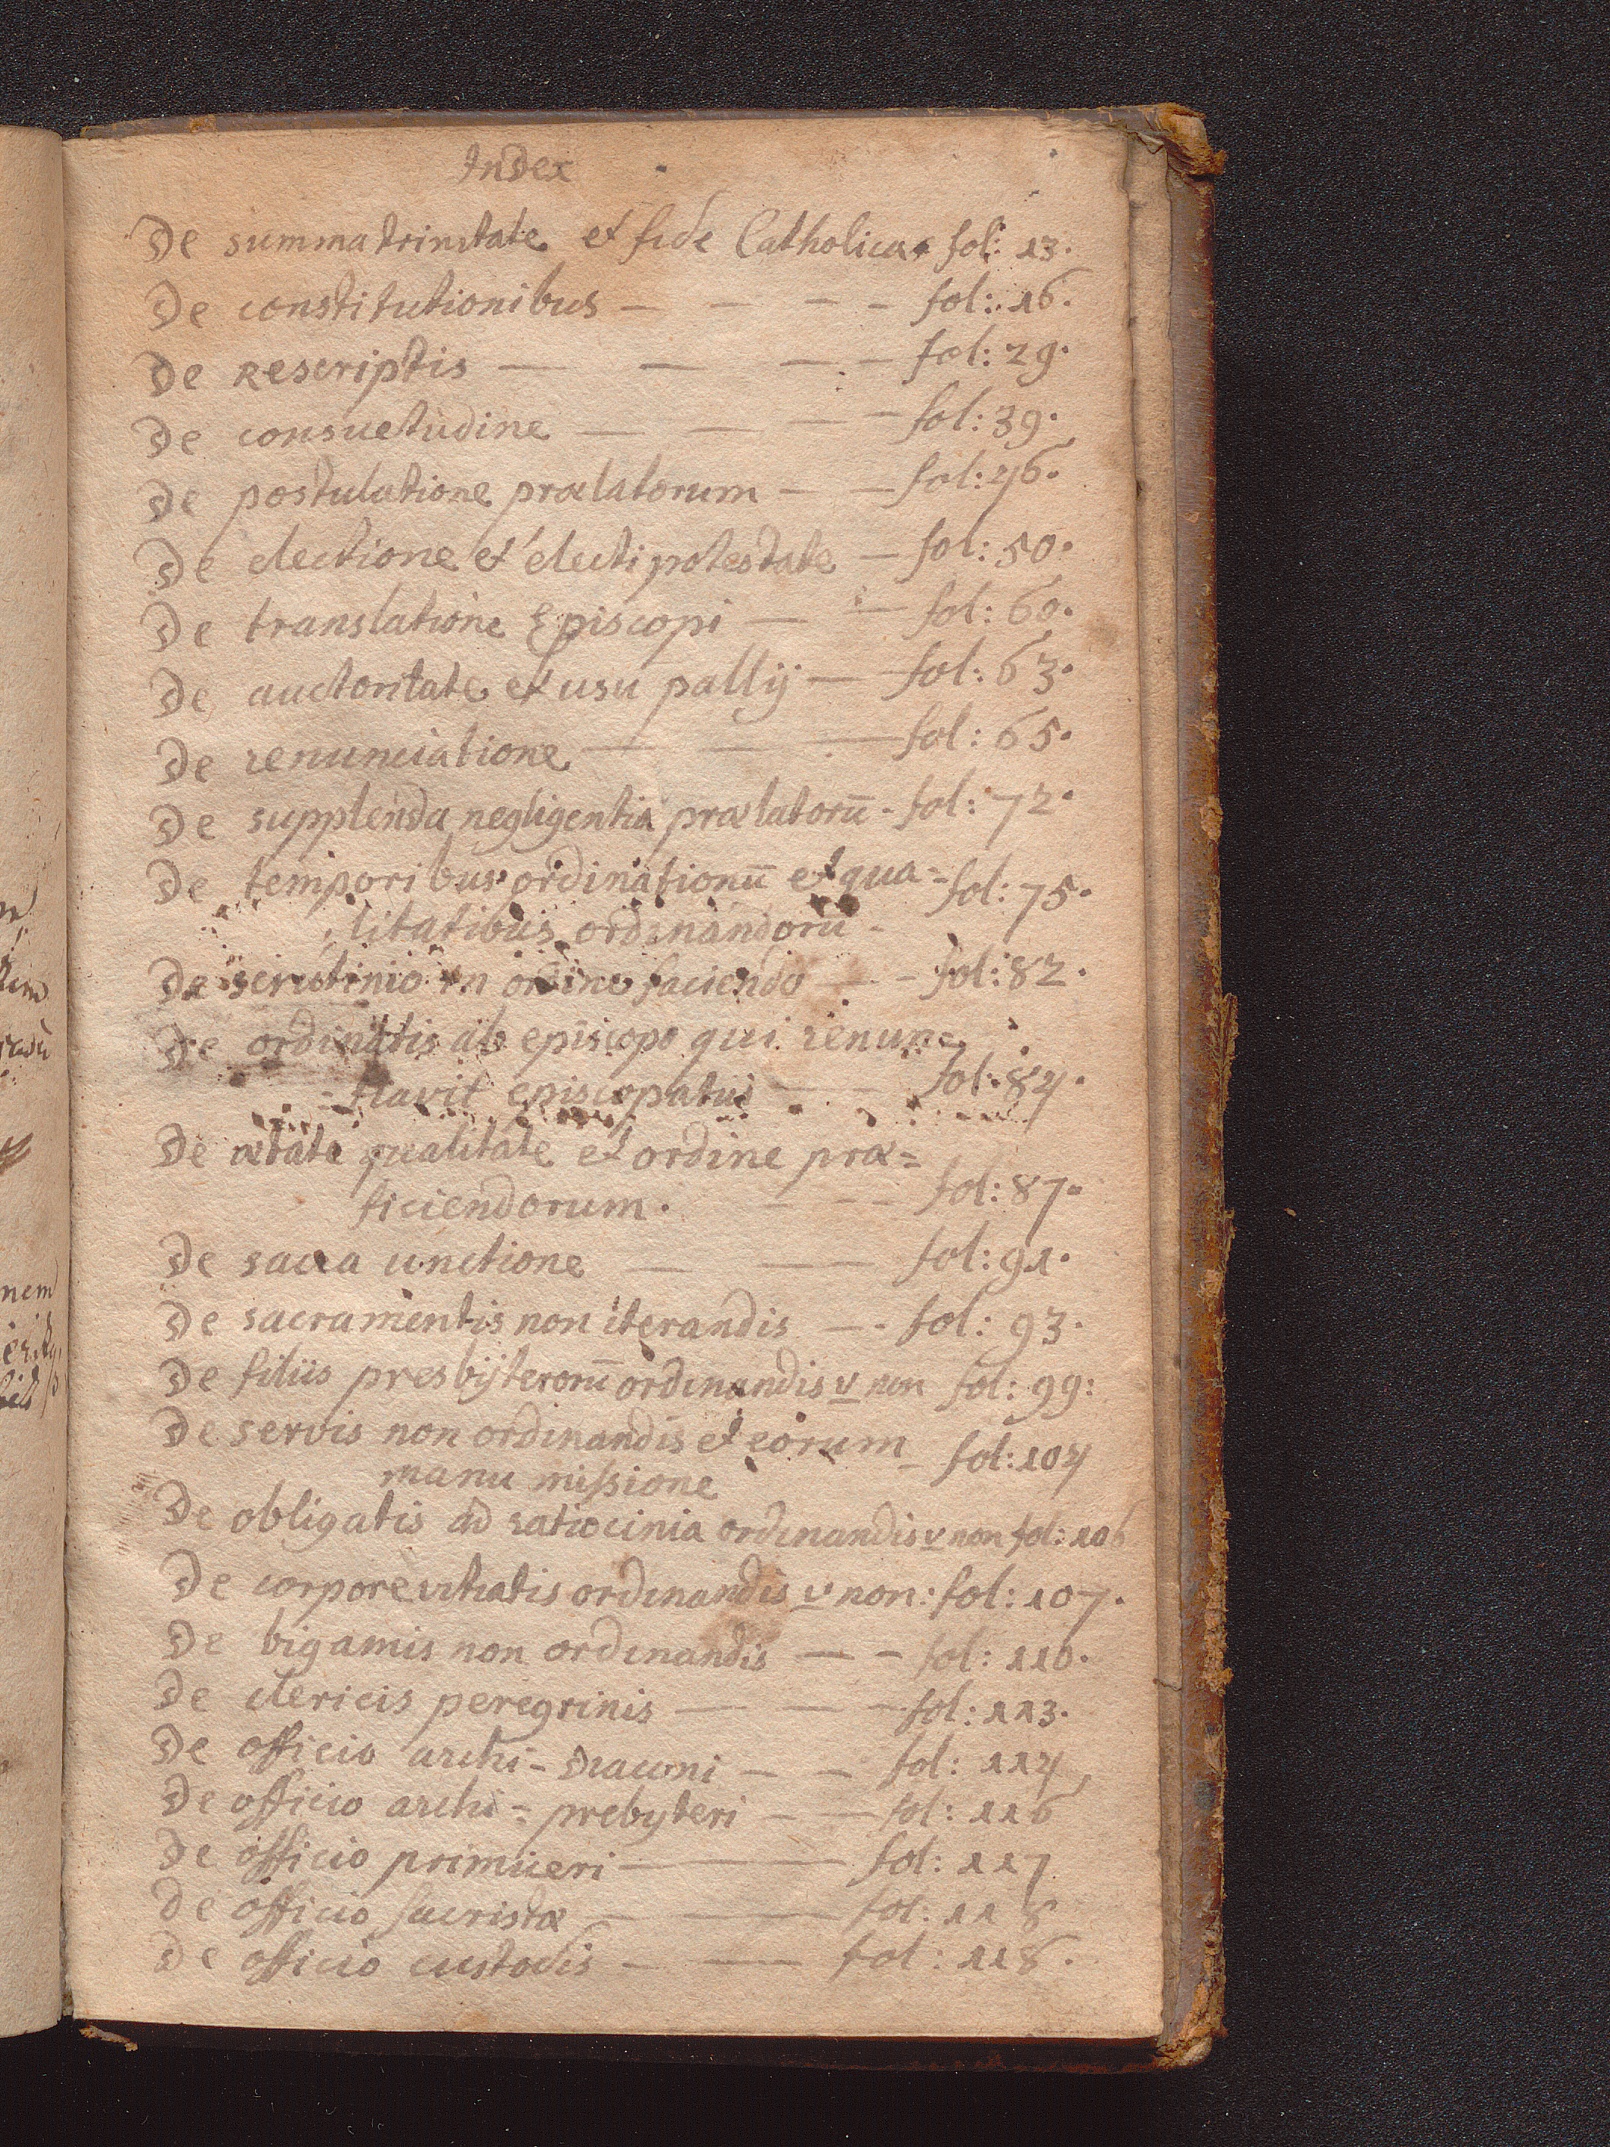 Index
De summa trinitate et fide Catholica fol: 13.
De constitutionibus — — — — fol: 16.
De Rescriptis — — — — fol: 29.
De consuetudine — — — — fol: 39.
De postulatione prælatorum — — fol: 46.
De electione et electi potestate — fol: 50.
De translatione Episcopi — — fol: 60.
De auctoritate et usu pallij — fol: 63.
De renunciatione — — — fol: 65.
De supplenda negligentia prælatorū - fol: 72.
De temporibus ordinationū et qua= fol: 75.
litatibus ordinandorū -
De scrutinio in ordine faciendo — - fol: 82.
De ordinatis ab episcopo qui renun=
=tiavit episcopatui — — fol: 84.
De ætate qualitate et ordine præ=
ficiendorum. — — fol: 87.
De sacra unctione — — — fol: 91.
De sacramentis non iterandis — - fol: 93.
De filiis presbyterorū ordinandis v non fol: 99:
De servis non ordinandis et eorum - fol: 104
manu missione
De obligatis ad ratiocinia ordinandis v non fol: 106
De corpore vitiatis ordinandis v non: fol: 107.
De bigamis non ordinandis — - fol: 110.
De clericis peregrinis — — - fol: 113.
De officio archi-diaconi — — fol: 114,
De officio archi=prebyteri — — fol: 116
De officio primiceri — — fol: 117
De officio sacristæ — — fol: 118
De officio custodis — — fol: 118.